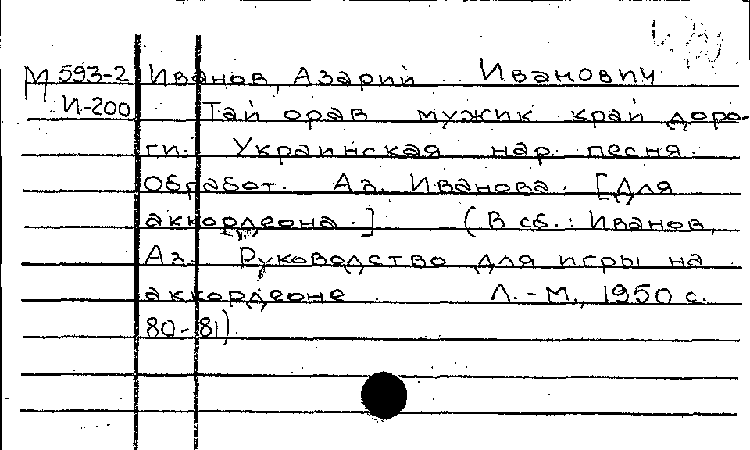 М 593-2 Иванов, Азарий Иванович
И-200 Тай орав мужик край доро-
ги. Украинская нар. песня.
Обработ. Аз. Иванова. [Для
аккордеона.] (В сб.: Иванов,
Аз. Руководство для игры на
аккордеоне Л.-М., 1950 с.
80-81)